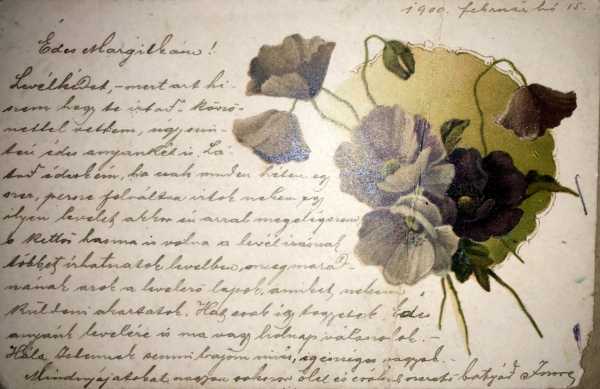 1900. február hó 15.
Édes Margitkám!
Levélkédet, – mert azt hi-
szem hogy te irtad – köszö-
nettel vettem, ugyszin-
tén édes anyánkét is. Lá-
tod édeském, ha csak minden héten egy-
szer, persze felváltva irtok nekem egy
ilyen levelet akkor én azzal megelégszem
s kettős haszna is volna a levélirásnak
többet irhatnátok levelben, s megmarad-
nának azok a levelező lapok, amiket nekem
küldeni akartatok. Hát csak igy tegyetek. Édes
anyánk levelére is ma vagy holnap válaszolok. –
Hála Istennek semmi bajom nincs, egészséges vagyok. –
Mindnyájatokat nagyon sokszor ölel és csókol szerető bátyád Imre